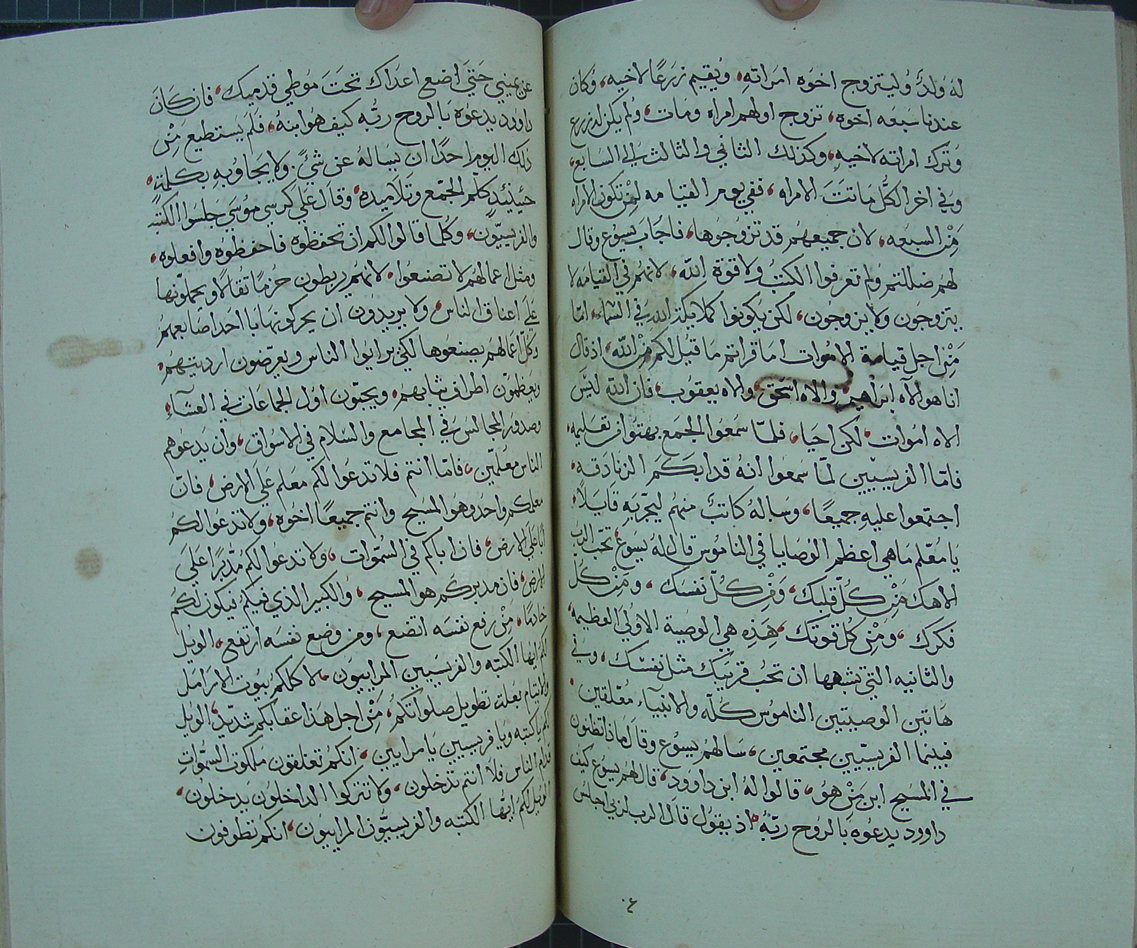 له ولد، وليتزوج اخوه امراته، ويقيم زرعًا لاخيه، وكان
عندنا سبعه اخوه، تزوج اولهم امراه ومات، ولم يكن له زرع
وترك امراته لاخيه، وكذلك الثاني والثالث الي السابع،
وفي اخر الكل ماتت الامراه، ففي يوم القيامه لمن تكون الامراه
من السبعه، لان جميعهم قد تزوجوها، فاجاب يسوع وقال
لهم ضللتم ولم تعرفوا الكتب ولا قوة الله، لانهم في القيامه لا
يتزوجون ولا يزوجون، لكن يكونوا كملايكة الله في السماء، امّا
من اجل قيامة الاموات اما قراتم ما قيل لكم من الله، اذ قال
انا هو الاه ابراهيم، والاه اسحق، والاه يعقوب، فان الله ليس
الاه اموات، لكن احيا، فلما سمعوا الجمع بهتوا من تعليمه،
فامّا الفريسيين لمّا سمعوا انه قد ابكم الزنادقه،
اجتمعوا عليه جميعًا، وساله كاتب منهم ليجربه قايلاً،
يا معلم ما هي اعظم الوصايا في الناموس قال له يسوع تحب الرب
الاهك من كل قلبك، ومن كل نفسك، ومن كل
فكرك، ومن كل قوتك، هذه هي الوصية الاولي العظيمه،
والثانيه التي تشبهها ان تحب قريبك مثل نفسك، وفي
هاتين الوصيتين الناموس كله والانبياء معلقين،
فبينما الفريسيين مجتمعين، سالهم يسوع وقال ماذا تظنون
في المسيح ابن من هو، قالوا له ابن داوود، قال لهم يسوع كيف
داوود يدعوه بالروح ربّه، اذ يقول قال الرب لربي اجلس
عن يميني حتى اضع اعداك تحت موطي قدميك، فان كان
داوود يدعوه بالروح ربّه كيف هو ابنه، فلم يستطيع من
ذلك اليوم احدًا ان يساله عن شيٍ، ولا يجاوبه بكلمة،
حينيذٍ كلم الجمع وتلاميذه، وقال علي كرسي موسي جلسوا الكتبه
والفريسيّون، وكلما قالوا لكم ان تحفظوه فاحفظوه وافعلوه،
ومثل اعمالهم لا تصنعوا، لانهم ربطون حزمًا ثقالاً ويحملونها
علي اعناق الناس، ولا يريدون ان يحركونها باحد اصابعهم
وكل اعمالهم يصنعوها لكي يرايوا الناس ويعرضون ارديتهم،
ويعظمون اطراف ثيابهم، ويحبّون اول الجماعات في العشاء،
وصدور المجالس في المجامع والسلام في الاسواق، وان يدعوهم
الناس معلمين، فامّا انتم فلا تدعوا لكم معلم علي الارض، فان
معلمكم واحد وهو المسيح وانتم جميعًا اخوه، ولا تدعوا لكم
ابًا علي الارض، فان اباكم في السموات، ولا تدعوا لكم مدبرًا علي
الارض، فان مدبركم هو المسيح، والكبير الذي فيكم فيكون لكم
خادمًا، من رفع نفسه اتضع، ومن وضع نفسه ارتفع، الويل
لكم ايها الكتبه والفريسيين المراييون، لاكلكم بيوت الارامل
والايتام بعلة تطويل صلواتكم، من اجل هذا عقابكم شديد، الويل
لكم ياكتبه ويا فريسيين يا مرايين، انكم تغلقون ملكوت السموات
قدام الناس فلا انتم تدخلون، ولا تتركوا الداخلون يدخلون،
الويل لكم ايها الكتبه والفريسيّون المراييون، انكم تطوفون
٤